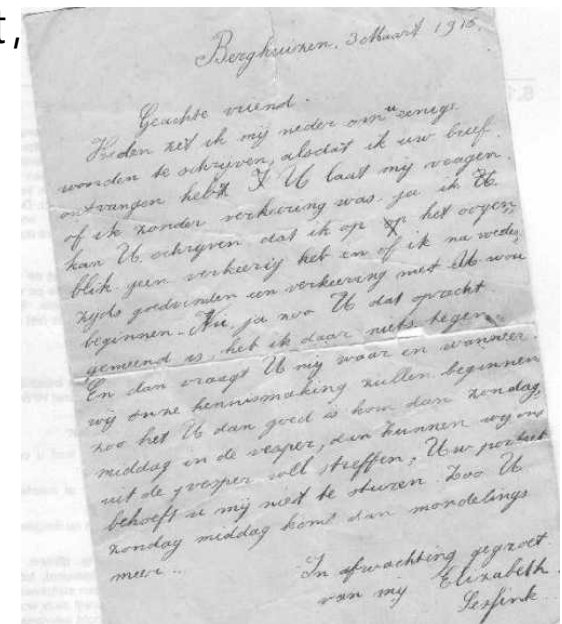 t,
Berghuizen, 3 Maart 1916.
Geachte vriend.
Heden zet ik mij neder om u eenige
woorden te schrijven, alsdat ik uw brief
ontvangen heb. U laat mij vragen
of ik zonder verkeering was. ja ik
kan U schrijven dat ik op op het oogen,
blik geen verkeerig heb en of ik na weder,
zijds goedvinden een verkeering met U wou
beginnen. Nu, ja zoo U dat oprecht
gemeend is, heb ik daar niets tegen
En dan vraagt U mij waar en wanneer.
wij onze kennismaking zullen beginnen
zoo het U dan goed is kom dan zondag,
middag in de vesper, dan kunnen wij ons
uit de vesper wel treffen, Uw portret
behoeft u mij niet te sturen. Zoo U
zondag middag komt dan mondelings
meer..
In afwachting gegroet
van mij Elizabeth